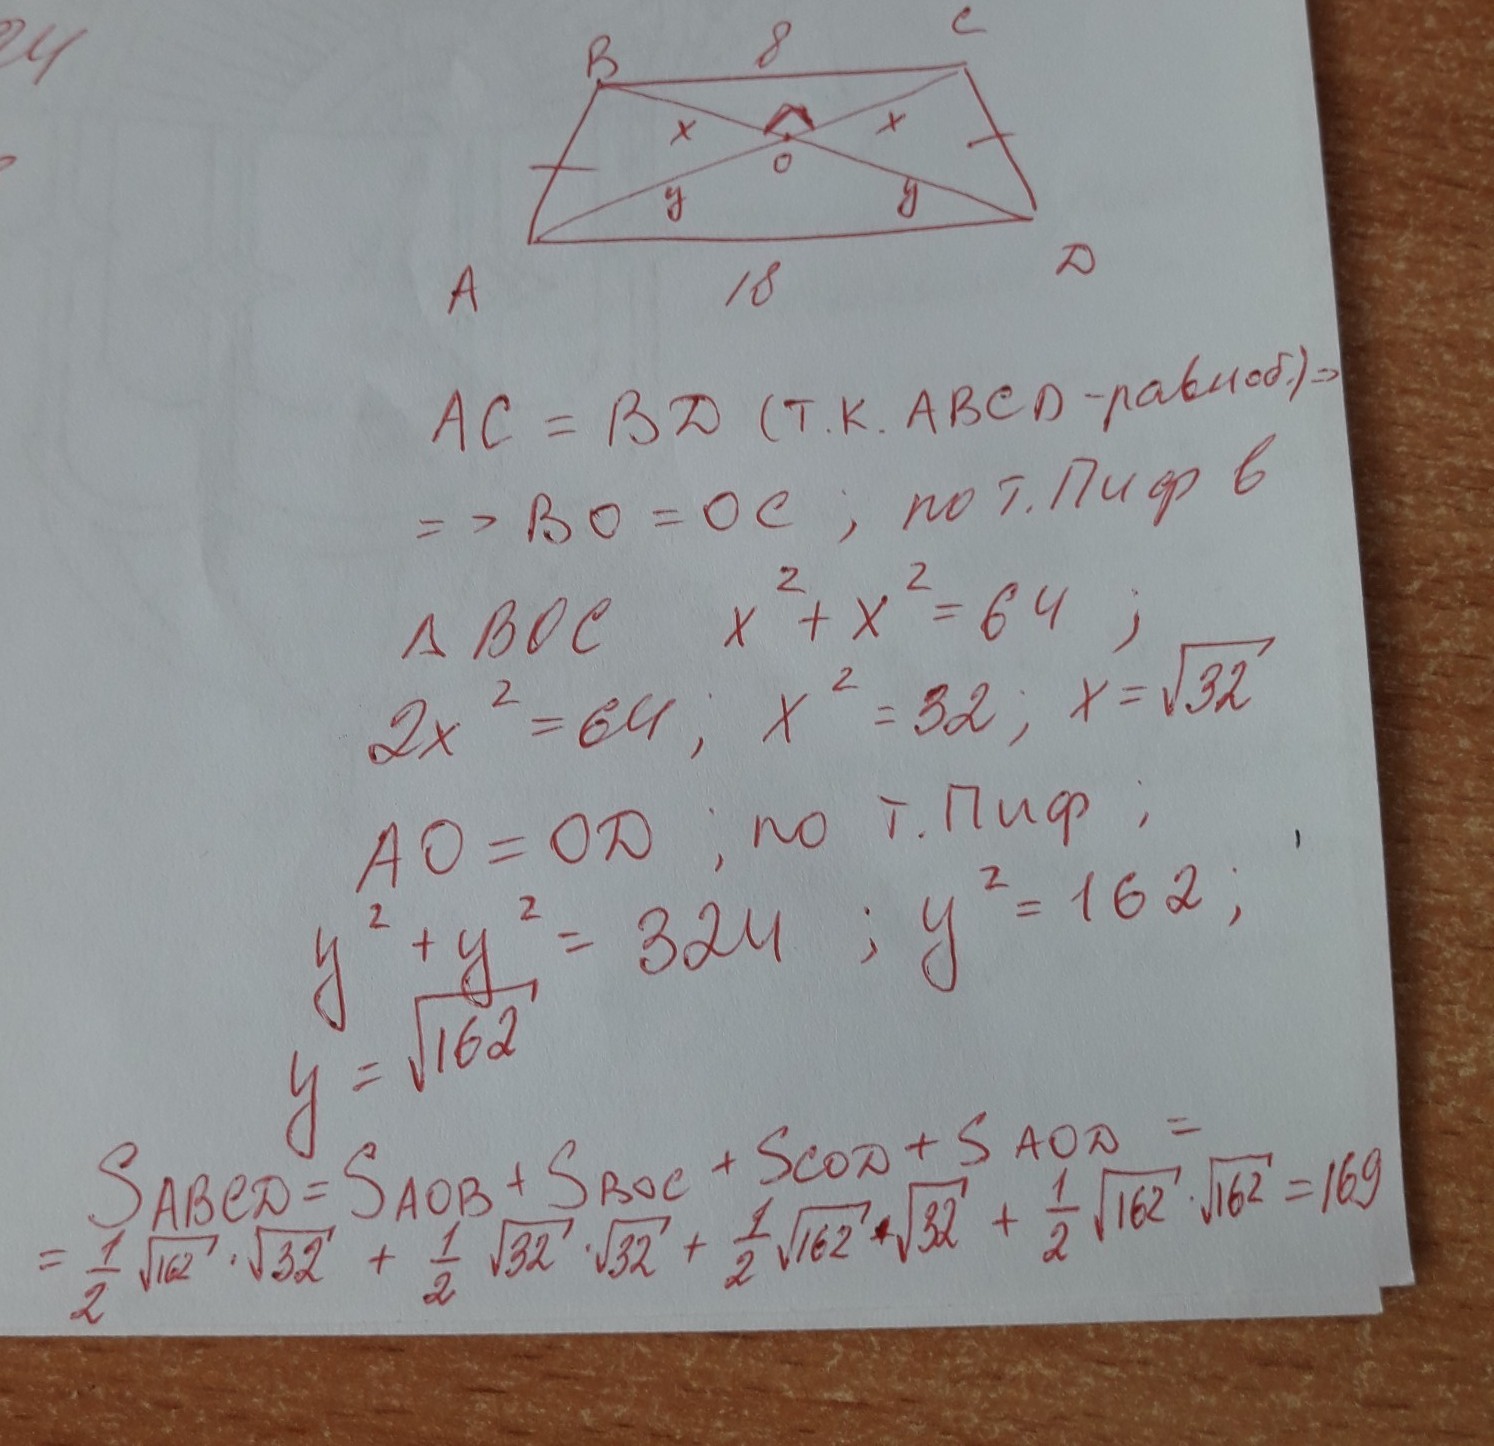 24
B 8 C
x x
O
y y
A 18 D
AC = BD (т.к. ABCD - равноб.) =>
=> BO = OC ; по т. Пиф в
Δ BOC x² + x² = 64 ;
2x² = 64 ; x² = 32 ; x = √32
AO = OD ; по т. Пиф ;
y² + y² = 324 ; y² = 162 ;
y = √162
S ABCD = S AOB + S BOC + S COD + S AOD =
= 1/2 √162 · √32 + 1/2 √32 · √32 + 1/2 √162 · √32 + 1/2 √162 · √162 = 169